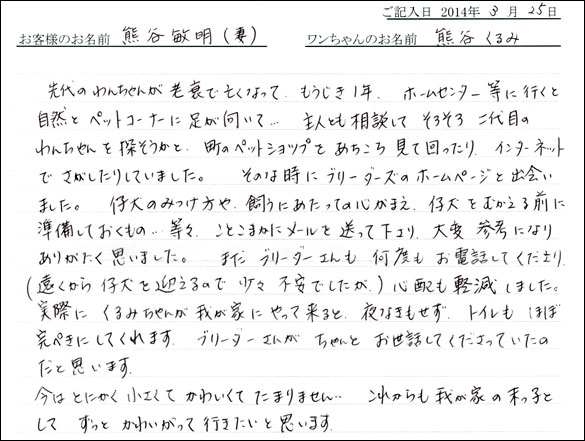 ご記入日 2014年 3 月 25日
お客様のお名前 熊谷敏明(妻) ワンちゃんのお名前 熊谷 くるみ
先代のわんちゃんが 老衰で亡くなって、もうじき1年。 ホームセンター等に行くと
自然と ペットコーナーに足が向いて… 主人とも相談して そろそろ 二代目の
わんちゃんを 探そうかと、町のペットショップを あちこち 見て回ったり、インターネット
で さがしたりしていました。 そのな時に ブリーダーズの ホームページと 出会い
ました。 仔犬の みつけ方や、飼うにあたっての心がまえ、仔犬を むかえる前に
準備しておくもの…等々、ことこまかにメールを 送って下さり、大変 参考になり
ありがたく思いました。 また ブリーダーさんも 何度も お電話してくださり
(遠くから 仔犬を 迎えるので 少々 不安でしたが、) 心配も 軽減しました。
実際に くるみちゃんが 我が家に やって来ると、夜なきもせず、トイレも ほぼ
完ぺきにしてくれます。 ブリーダーさんが ちゃんと お世話してくださっていたの
だと思います。
今は とにかく 小さくて かわいくて たまりません… これからも 我が家の末っ子と
して ずっと かわいがって行きたいと思います。